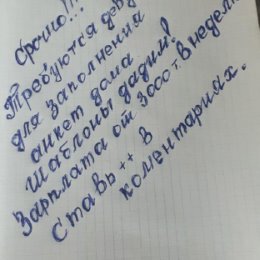 Срочно!!!
Требуются дев
для заполнения
анкет дома
Шаблоны дадим!
Зарплата от 3000т. в недел
Ставь ++ в
коментариях.